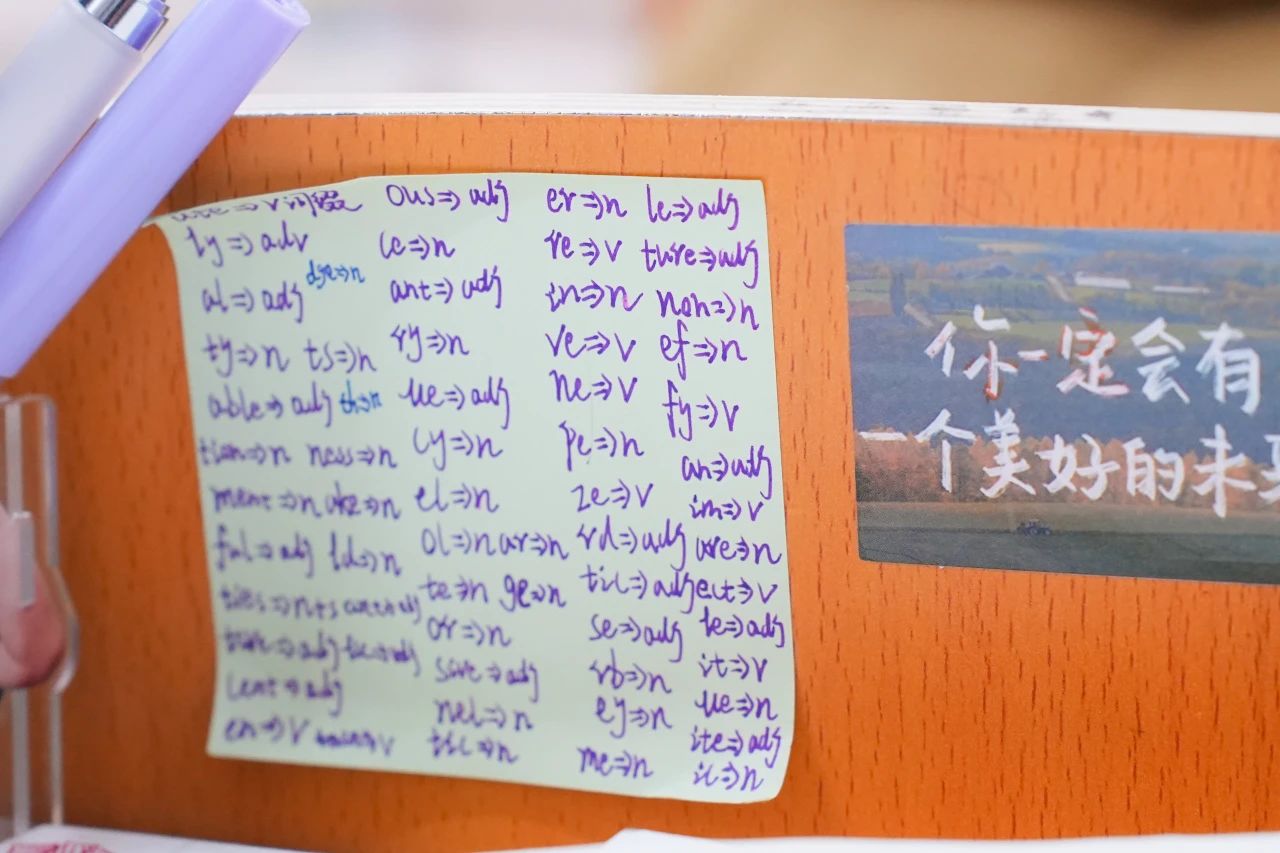 ate⇒v词缀 ous⇒adj er⇒n le⇒adj
ly⇒adv ce⇒n re⇒v ture⇒adj
dge⇒n
al⇒adj ant⇒adj in⇒n non⇒n
ty⇒n ts⇒n ry⇒n ve⇒v ef⇒n
able⇒adj th⇒n ue⇒adj ne⇒v fy⇒v
tion⇒n ness⇒n cy⇒n pe⇒n an⇒adj
ment⇒n el⇒n ze⇒v im⇒v
ful⇒adj ld⇒n ol⇒n ar⇒n rd⇒adj are⇒n
ties⇒n+s te⇒n ge⇒n tic⇒adj ect⇒v
or⇒n se⇒adj le⇒adj
sive⇒adj rb⇒n it⇒v
lent⇒adj nel⇒n ey⇒n ue⇒n
en⇒v tic⇒n me⇒n ite⇒adj
ic⇒n
你一定会有
一个美好的未来